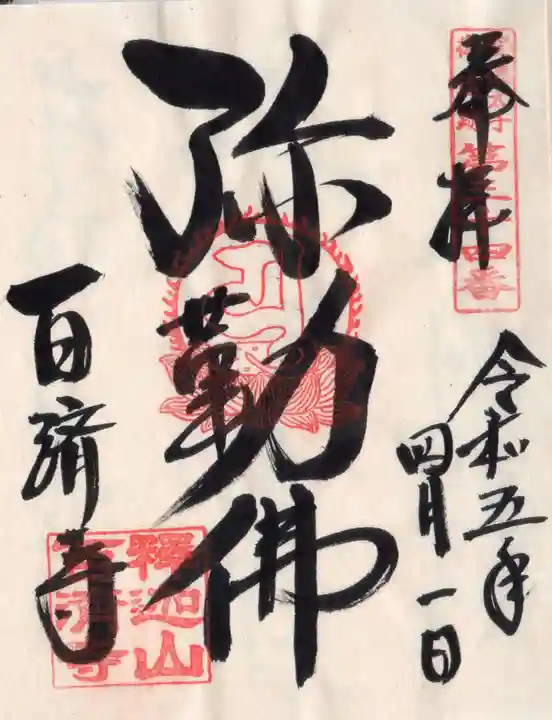 奉拝
第三十四番
令和五年
四月一日
弥勒佛
百濟寺
釋迦山
百濟寺